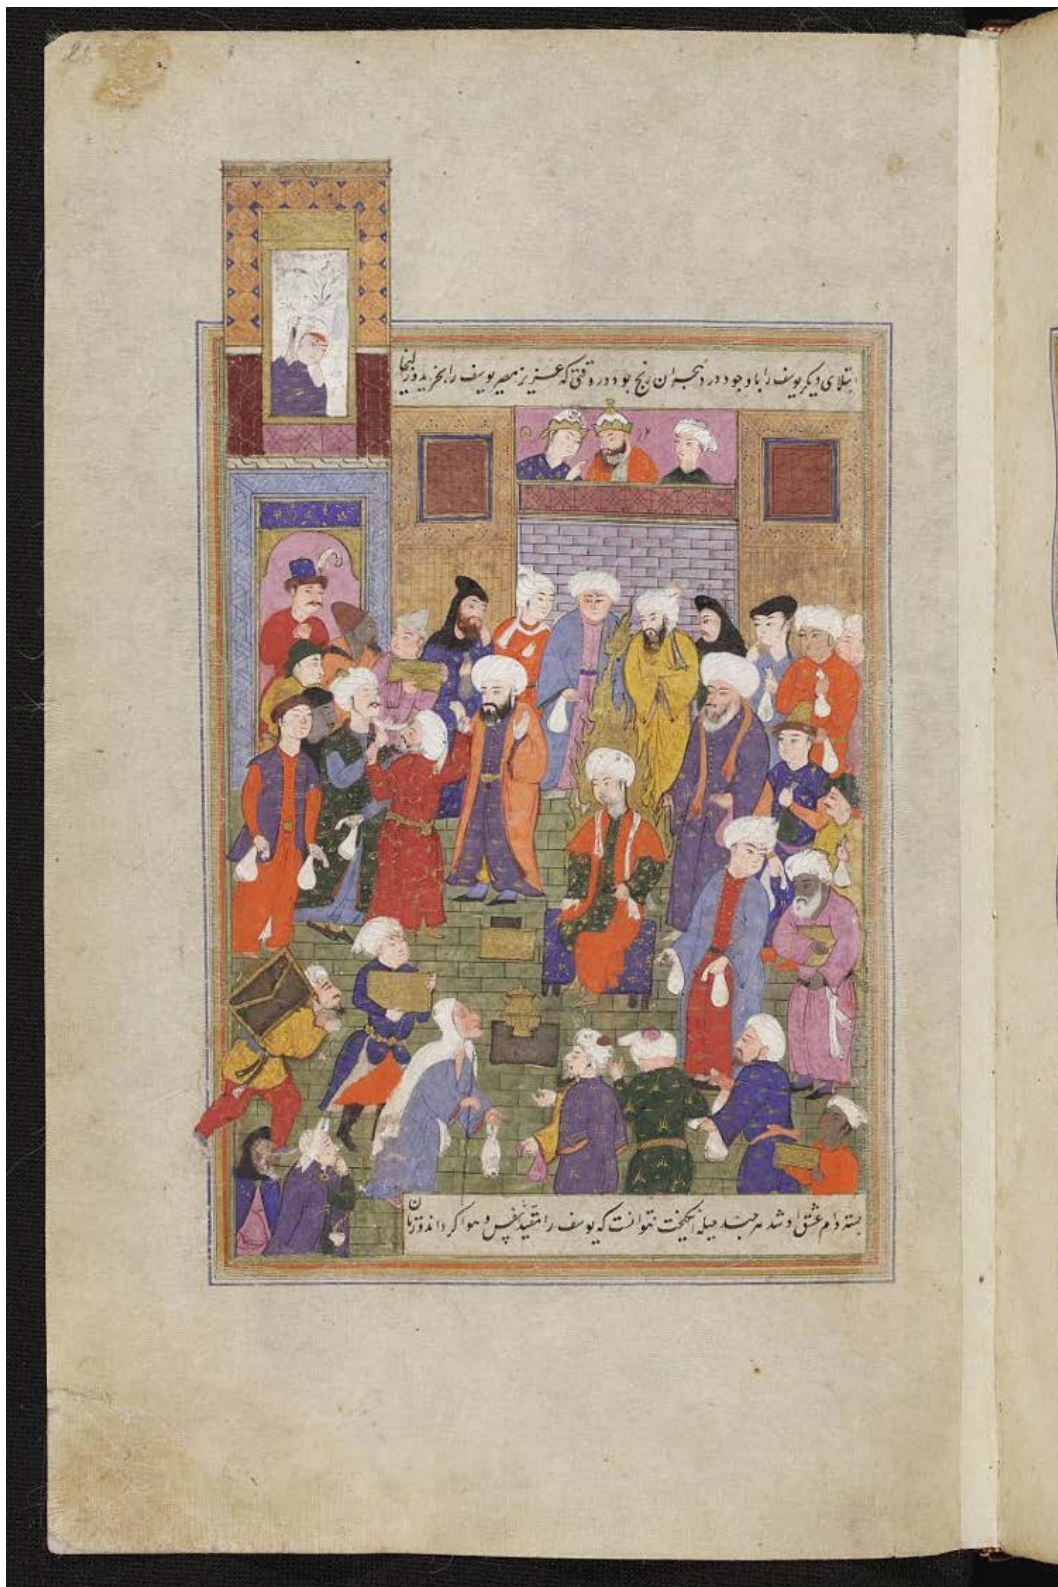 26
ابتلای دیگر یوسف را با وجود درد هجران رنج بود در وقتی که عزیز مصر یوسف را بخرید و زلیخا
بسته دام عشق او شد هر چند حیله انگیخت نتوانست که یوسف را مقید نفس و هوا گرداند و زنان